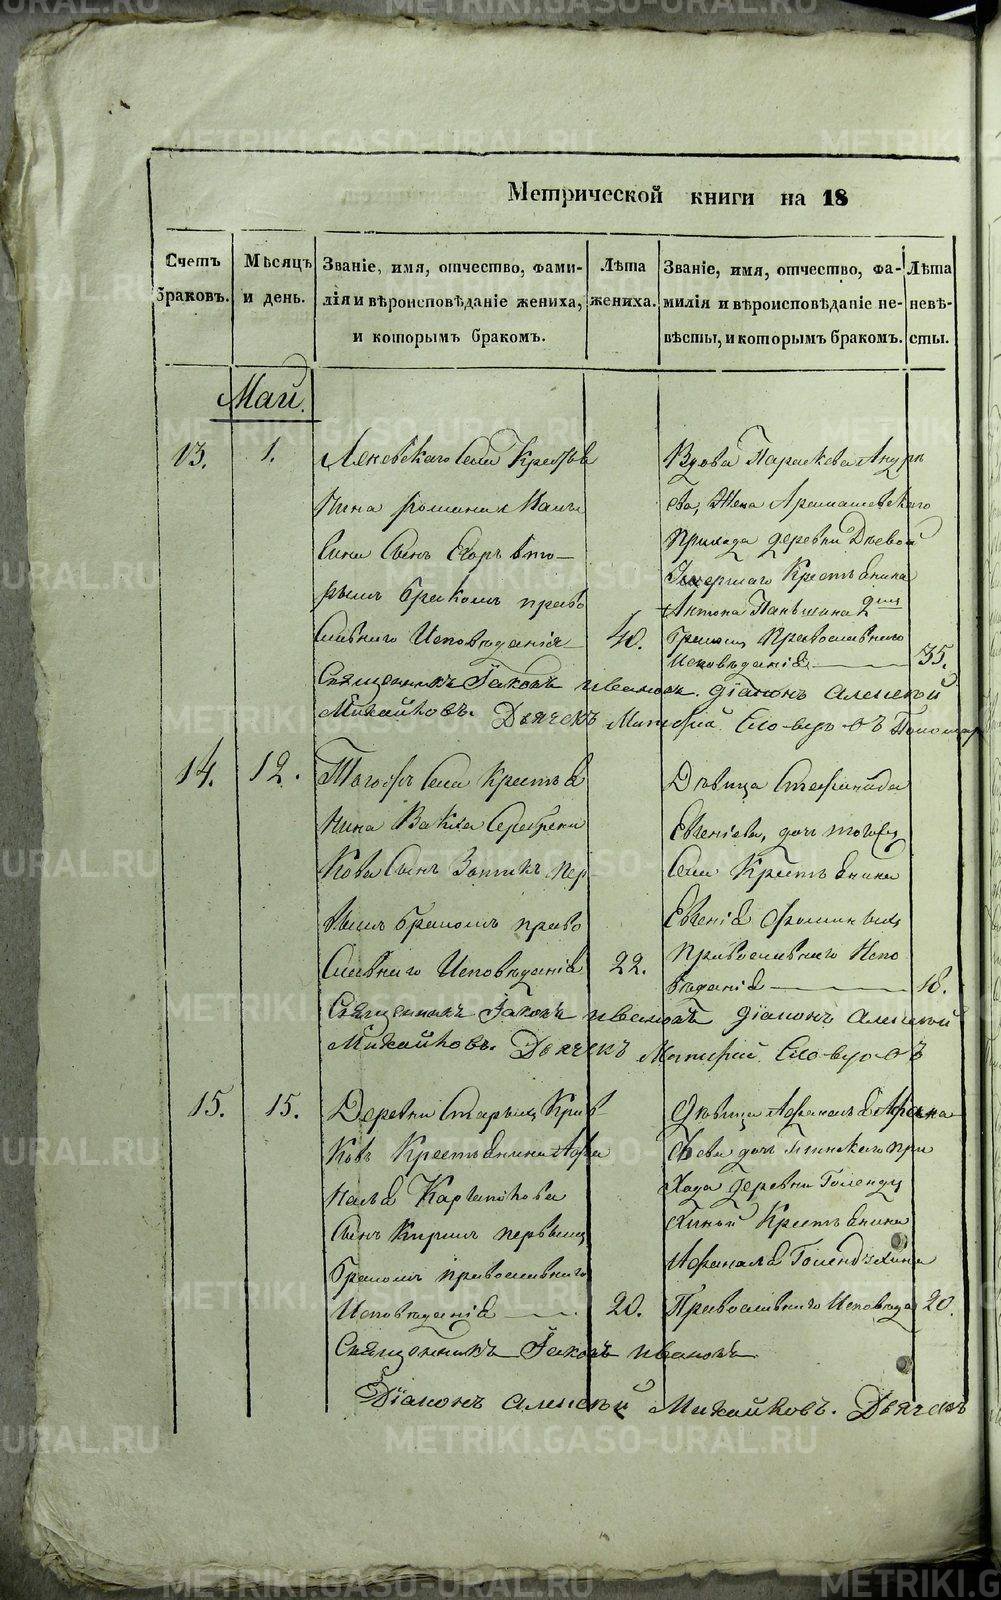 Метрической книги на 18
Счетъ браковъ.
Мѣсяцъ и день.
Званіе, имя, отчество, фами-
лія и вѣроисповѣданіе жениха,
и которымъ бракомъ.
Лѣта жениха.
Званіе, имя, отчество, фа-
милія и вѣроисповѣданіе не-
вѣсты, и которымъ бракомъ.
Лѣта невѣ-
сты.
Май.
13.
1.
Села Крестья
нина
Сынъ Егоръ вто-
рымъ бракомъ право
славнаго Исповѣданія
40.
Вдова Параскева Андре
ева, Жена Арамашевскаго
прихода деревни Дѣевой
Умершаго Крестьянина
Антона Паньшина 2мъ
бракомъ Православнаго
Исповѣданія
35.
Священникъ Іаковъ Ивановъ. Діаконъ Алексѣй
Михайловъ. Дьячекъ
14.
12.
Тогожъ Села Крестья
нина Вакха Серебрени
кова Сынъ Зотикъ пер
вымъ бракомъ право
славнаго Исповѣданія
22.
Дѣвица Стефанида
Евгеніева, дочь тогожъ
Села Крестьянина
Евгенія Фоминыхъ
Православнаго Испо
вѣданія
18.
Священникъ Іаковъ Ивановъ Діаконъ Алексѣй
Михайловъ. Дьячекъ
15.
15.
Деревни Старыхъ Крив
ковъ Крестьянина Афа
насья Картапокова
Сынъ Кирилъ первымъ
бракомъ православнаго
Исповѣданія
20.
Дѣвица
дочь Глинскаго при
хода деревни Голенду
хиной Крестьянина
Афанасья Голендухина
Православнаго Исповѣда
20.
Священникъ Іаковъ Ивановъ
Діаконъ Алексѣй Михайловъ. Дьячекъ
METRIKI.GASO-URAL.RU